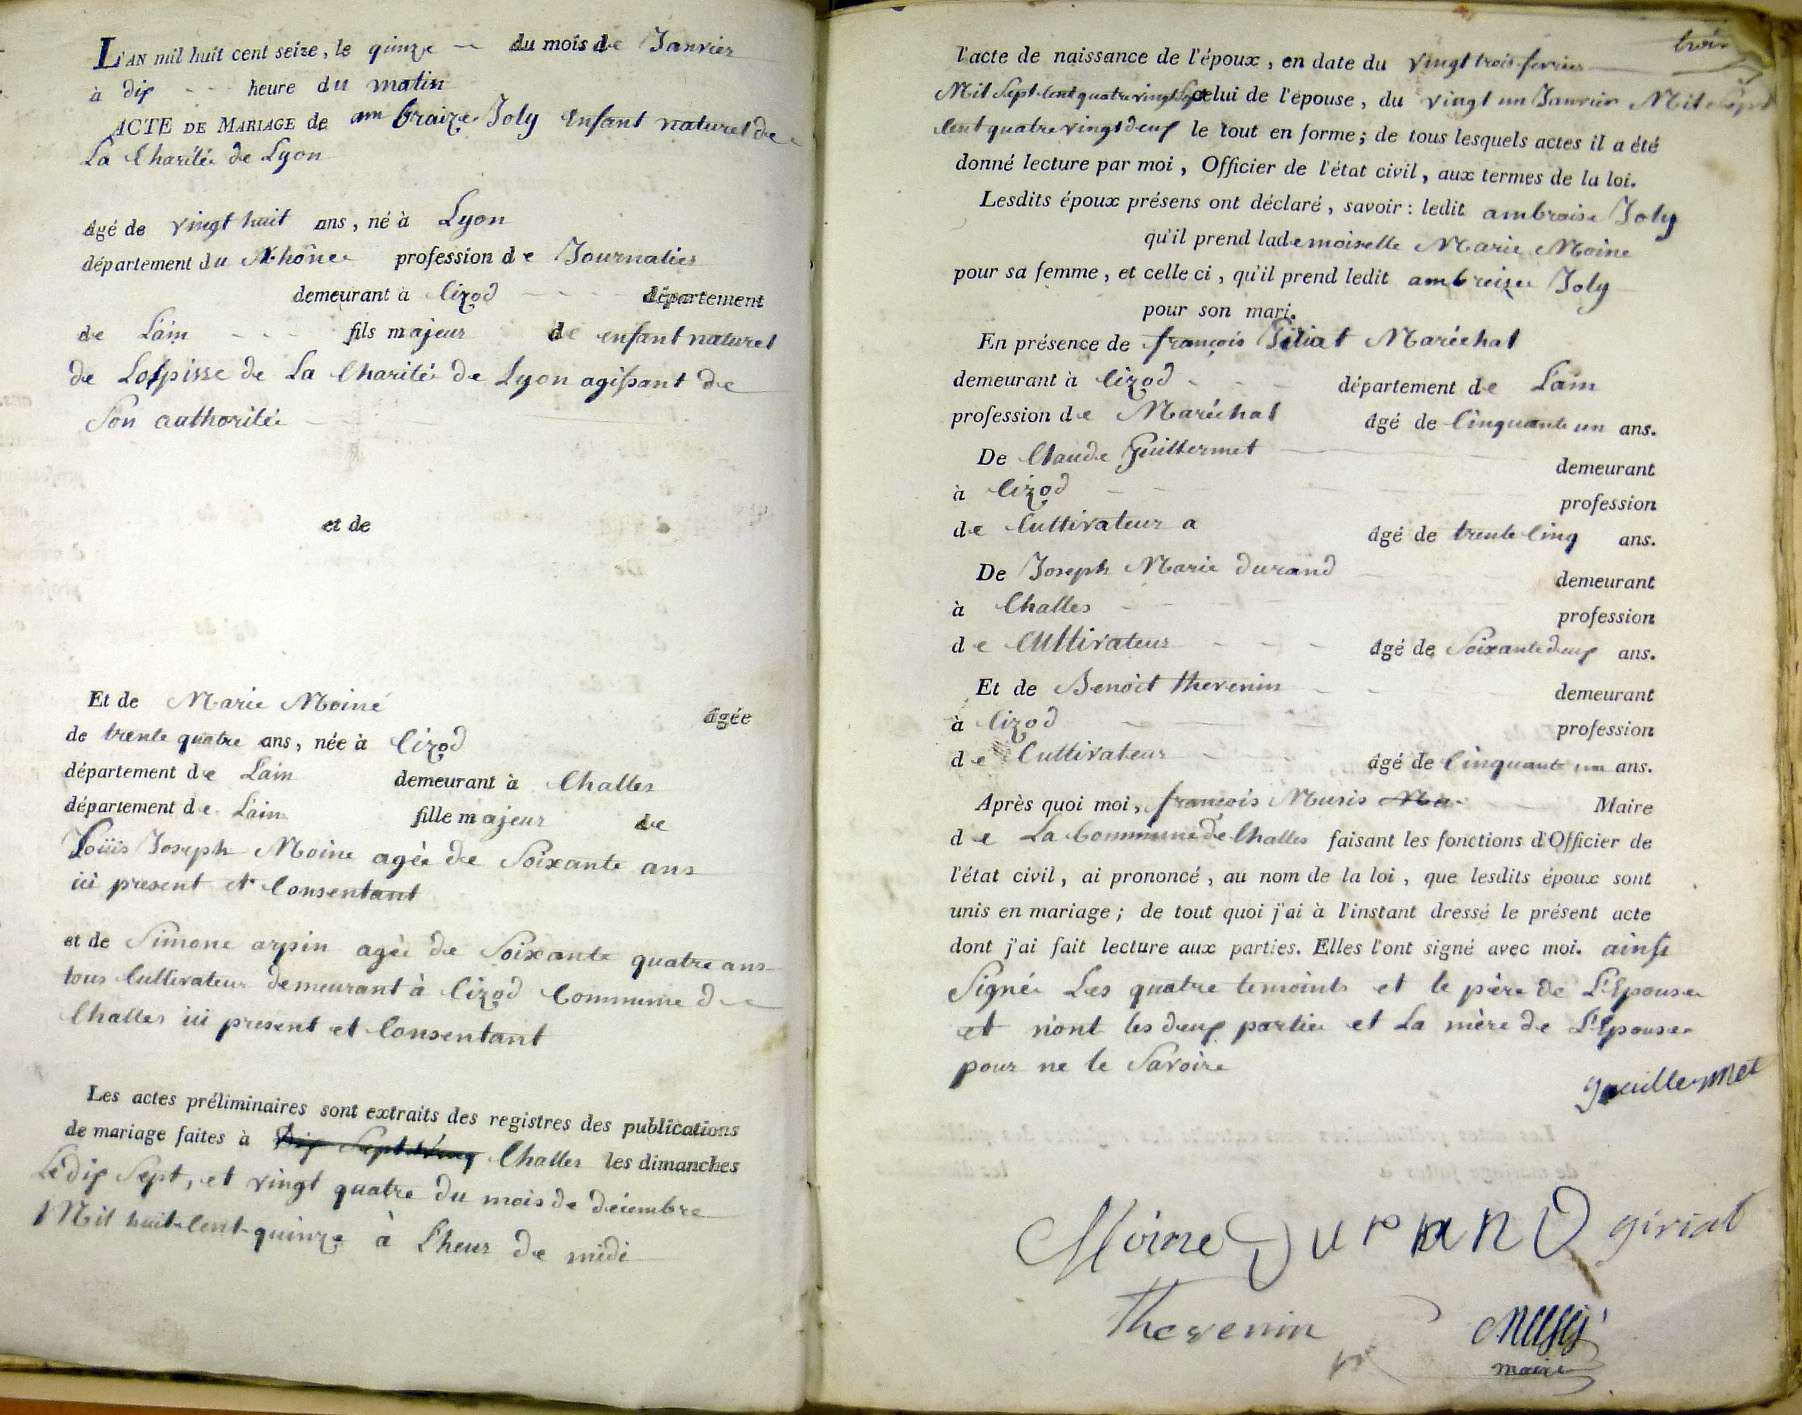 L'AN mil huit cent seize, le quinze du mois de Janvier
à dix heure du matin
ACTE DE MARIAGE de ambraize Joly Enfant naturel de
La Charité de Lyon
âgé de vingt huit ans, né à Lyon
département du Rhône profession de Journalier
demeurant à Cizod département
de L'ain fils majeur de enfant naturel
de Lospisse de La Charité de Lyon agissant de
Son authorité
et de
Et de Marie Moine âgée
de trente quatre ans, née à Cizod
département de Lain demeurant à Challes
département de Lain fille majeur de
Loüis Joseph Moine agée de Soixante ans
ici present et Consentant
et de Simone arpin agée de Soixante quatre ans
tous Cultivateur demeurant à Cizod Commune de
Challes ici present et Consentant
Les actes préliminaires sont extraits des registres des publications
de mariage faites à Challes les dimanches
Le dix Sept, et vingt quatre du mois de décembre
Mil huit Cent quinze à L'heur de midi
trois
l'acte de naissance de l'époux, en date du vingt trois fevrier
Mil Sept Cent quatre vingt Sept celui de l'épouse, du vingt un Janvier Mil Sept
Cent quatre vingt deux le tout en forme; de tous lesquels actes il a été
donné lecture par moi, Officier de l'état civil, aux termes de la loi.
Lesdits époux présens ont déclaré, savoir: ledit ambroise Joly
qu'il prend lademoiselle Marie Moine
pour sa femme, et celle ci, qu'il prend ledit ambroise Joly
pour son mari.
En présence de françois Maréchal
demeurant à Cizod département de Lain
profession de Maréchal âgé de Cinquante un ans.
De Claude Guillermet demeurant
à Cizod profession
de Cultivateur a âgé de trente Cinq ans.
De Joseph Marie durand demeurant
à Challes profession
de Cultivateur âgé de Soixante deux ans.
Et de Benoit thevenin demeurant
à Cizod profession
de Cultivateur âgé de Cinquante un ans.
Après quoi moi, françois Maire
de La Commune de Challes faisant les fonctions d'Officier de
l'état civil, ai prononcé, au nom de la loi, que lesdits époux sont
unis en mariage; de tout quoi j'ai à l'instant dressé le présent acte
dont j'ai fait lecture aux parties. Elles l'ont signé avec moi. ainsi
Signé Les quatre temoints et le père de L'Epouse
et n'ont les deux partie et La mère de L'Epouse
pour ne le Savoire
guillermet
Moine DuranD giriat
thevenin
maire